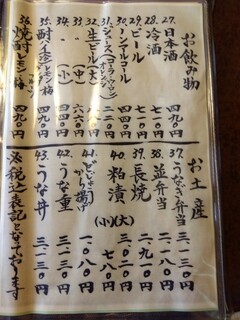 お飲み物
27. 日本酒 四九〇円
28. 冷酒 七八〇円
29. ビール 七一〇円
30. ノンアルコール 四四〇円
31. ジュース(コーラ・ウーロン) 二二〇円
32. 生ビール(大)
33. 〃 (中) 六六〇円
34. 〃 (小)
35. 酎ハイ レモン・梅 四九〇円
36. 焼酎 レモン・梅 四九〇円
お土産
37. うなぎ弁当 三、一三〇円
38. 並弁当
39. 長焼 二、九一〇円
40. 粕漬 (大) 三、〇二〇円
(小) 七八〇円
41. どじょうから揚げ 一、〇八〇円
42. うな重 三、一三〇円
43. うな丼 三、一三〇円
※税込表記となっております